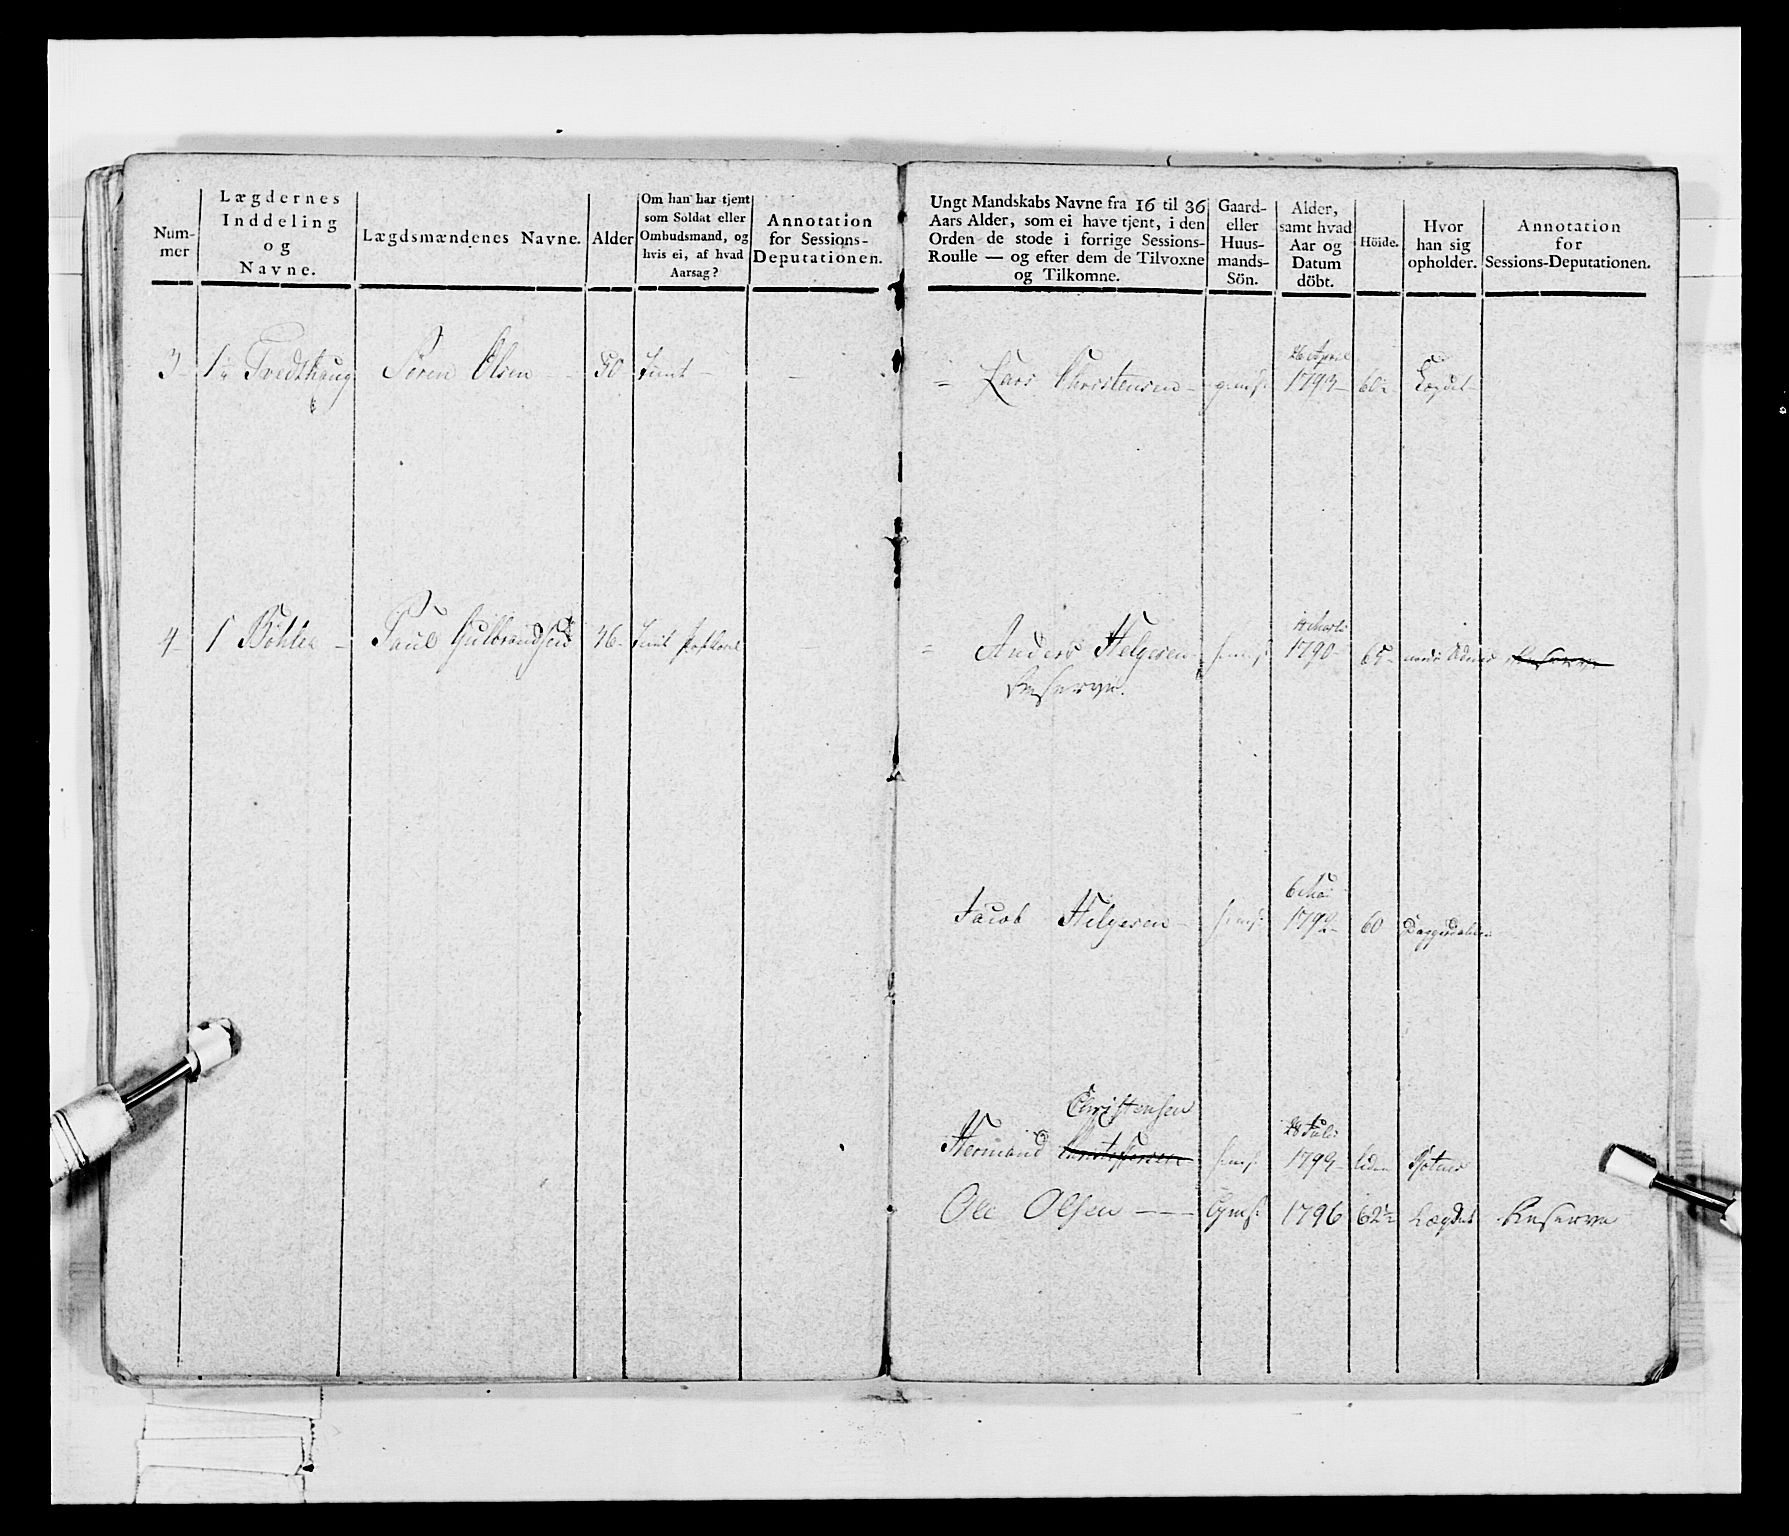 Num-
mer
Lægdernes
Inddeling
og
Navne.
Lægdsmændenes Navne.
Alder
Om han har tjent
som Soldat eller
Ombudsmand, og
hvis ei, af hvad
Aarsag?
Annotation
for Sessions-
Deputationen.
Ungt Mandskabs Navne fra 16 til 36
Aars Alder, som ei have tjent, i den
Orden de stode i forrige Sessions-
Roulle — og efter dem de Tilvoxne
og Tilkomne.
Gaard-
eller
Huus-
mands-
Sön.
Alder,
samt hvad
Aar og
Datum
döbt.
Höide.
Hvor
han sig
opholder.
Annotation
for
Sessions-Deputationen.
3 Sören Olsen 50 tient
26 April
Lars Christensen 1793 Lægdet
4 1 Paul Gulbrandsen 46 tient
Anders Helgesen 1790 65
Reserve
6 Mai
Jacob Helgesen 1792 60
Christensen
28 Juli
Hermand 1799 liden
Ole Olsen Gmsf 1796 62½ Lægdet Reserve